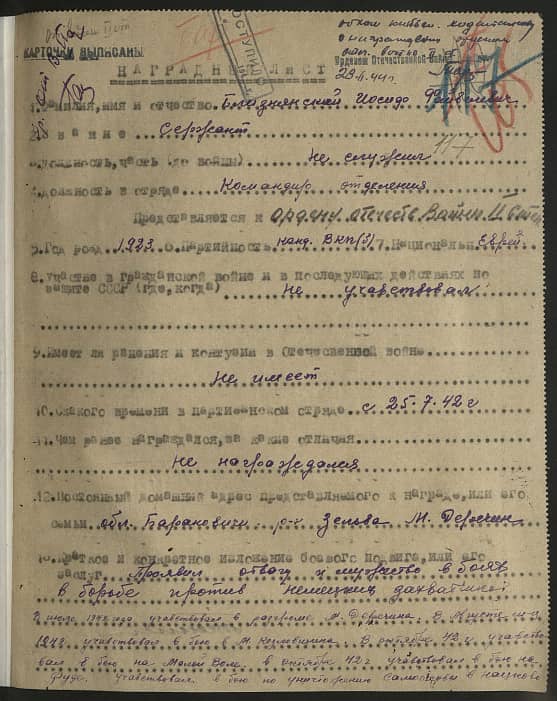 КАРТОЧКИ ВЫПИСАНЫ
ПОСТУПИЛО
Орденом Отечественной Войны
29.II.44 г.
НАГРАДНЫЙ ЛИСТ
117
1. Фамилия, имя и отчество. Иосиф
2. Звание. Сержант
3. Должность, часть (до войны) Не служил
4. Должность в отряде. Командир отделения
Представляется к ордену отечеств. Войны II степ
5. Год рожд. 1923. 6. Партийность. канд. ВКП(б) 7. Национальн. Еврей
8. Участие в гражданской войне и в последующих действиях по
защите СССР (где, когда) Не учавствовал
9. Имеет ли ранения и контузии в Отечественной войне
Не имеет
10. С какого времени в партизанском отряде. с 25.7.42 г
11. Чем ранее награждался, за какие отличия
Не награждался
12. Постоянный домашний адрес представляемого к награде, или его
семьи. обл. Барановичи р-н Зельва М. Деречин
13. Краткое и конкретное изложение боевого подвига, или его
заслуг. Проявил отвагу и мужество в боях
в борьбе против немецких захватчиков
В июле 1942 года учавствовал в разгроме М. Деречина. В Августе м-це
1942 учавствовал в бою в М. Козловщина. В октябре 42 г. учавство
вал в бою на Воли. в октября 42 г учавствовал в бою на
учавствовал в бою по уничтожению